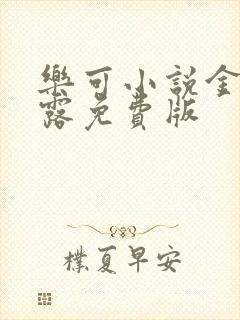 樂可小說金
露免費版
樸夏早安